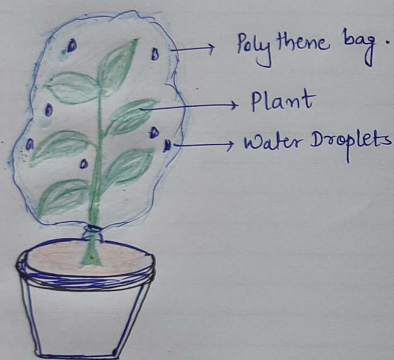 Polythene bag.
Plant
Water Droplets